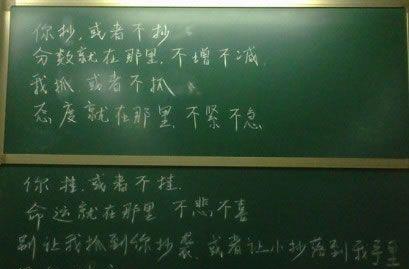 你抄,或者不抄
分数就在那里,不增不减,
我抓,或者不抓
态度就在那里 不紧不急
你挂,或者不挂,
命运就在那里 不悲不喜
别让我抓到你抄袭,或者让小抄落到我手里